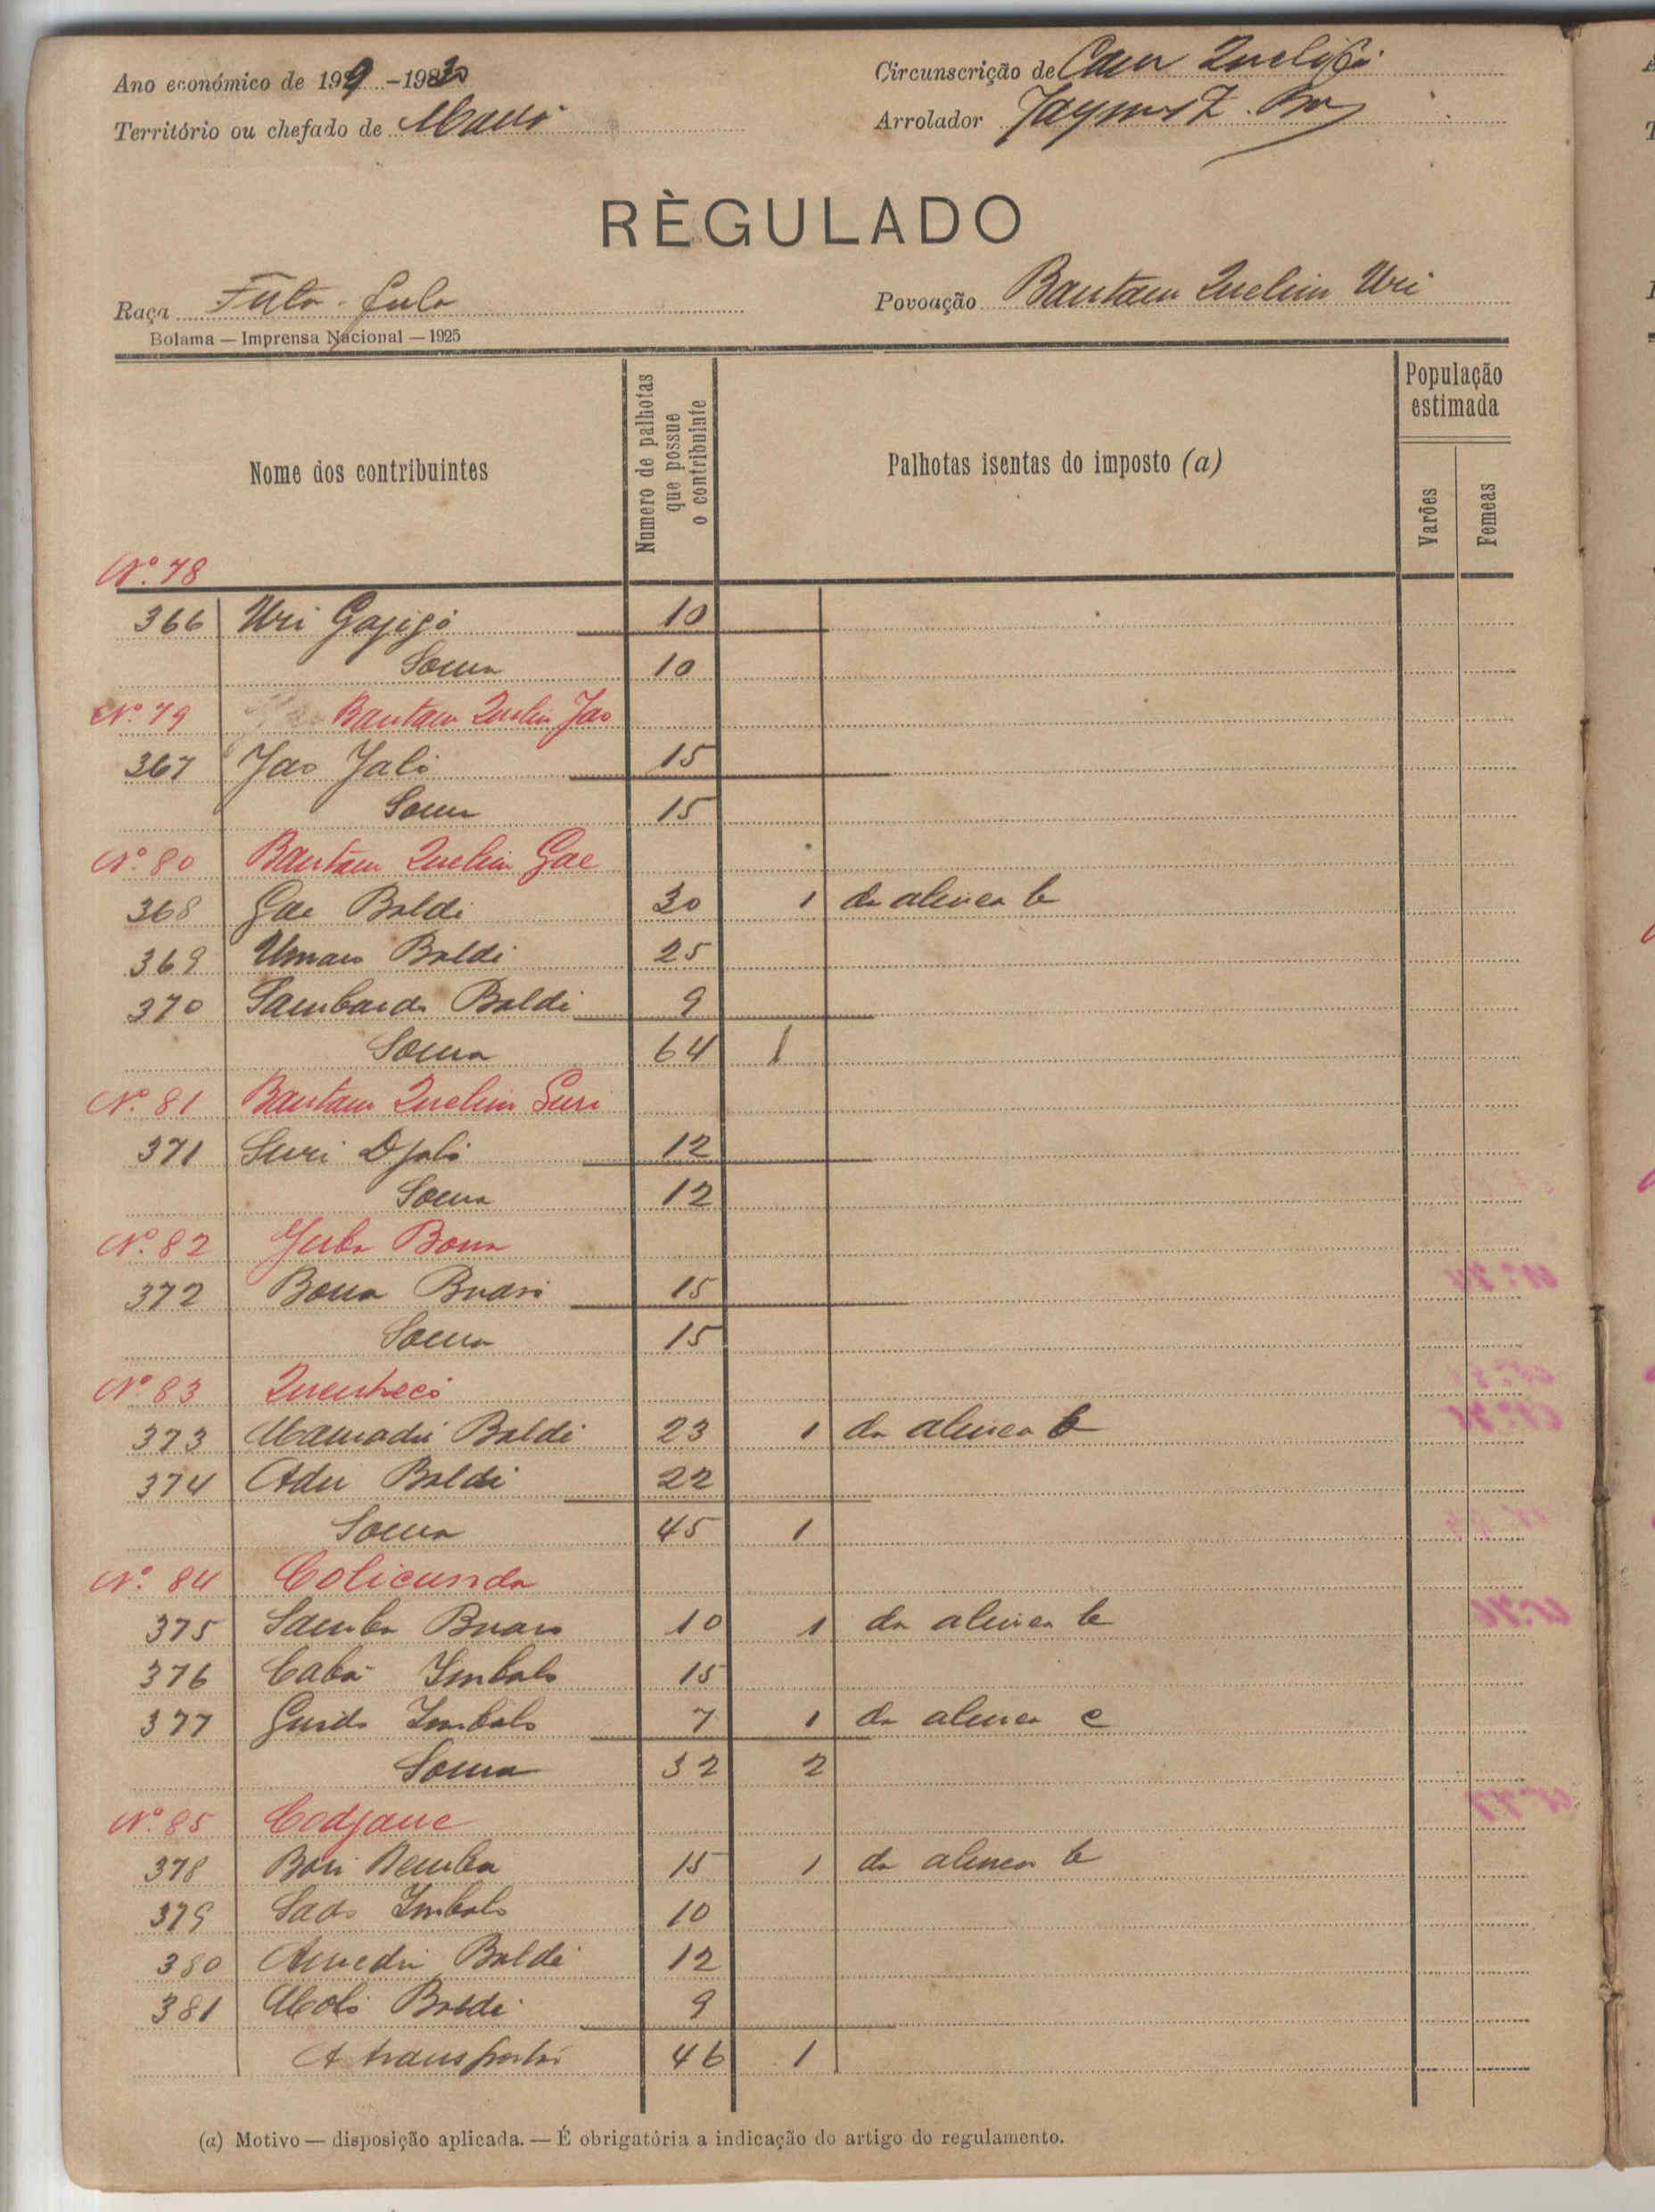 Ano económico de 199-19830
Circunscrição de
Território ou chefado de
Arrolador
RÈGULADO
Raça Futa-fula
Povoação Bantam Quelim Uri
Bolama — Imprensa Nacional — 1925
Nome dos contribuintes
Numero de palhotas que possue o contribuinte
Palhotas isentas do imposto (a)
População estimada
Varões
Femeas
Nº. 78
366 Uri Gajigó 10
Soma 10
Nº 79 Bantam Quelin Jao
367 Jao Jaló 15
Soma 15
Nº 80 Bantam Quelim Gae
368 Gae Baldé 30 1 da alinea b
369 Umaro Baldé 25
370 Sambaido Baldé 9
Soma 64 1
Nº 81 Bantam Quelim Suri
371 Suri Djaló 12
Soma 12
Nº. 82 Juba Bona
372 Bona Buaró 15
Soma 15
Nº 83
373 Mamadú Baldé 23 1 da alinea b
374 Adú Baldé 22
Soma 45 1
Nº. 84 Colicunda
375 Samba Buaro 10 1 da alinea b
376 Cabá Imbalo 15
377 Guido Imbalo 7 1 da alinea c
Soma 32 2
Nº 85 Codjane
378 Bori Demba 15 1 da alinea b
379 Sado Imbalo 10
380 Amedú Baldé 12
381 Moló Baldé 9
A transportar 46 1
(a) Motivo — disposição aplicada. — É obrigatória a indicação do artigo do regulamento.